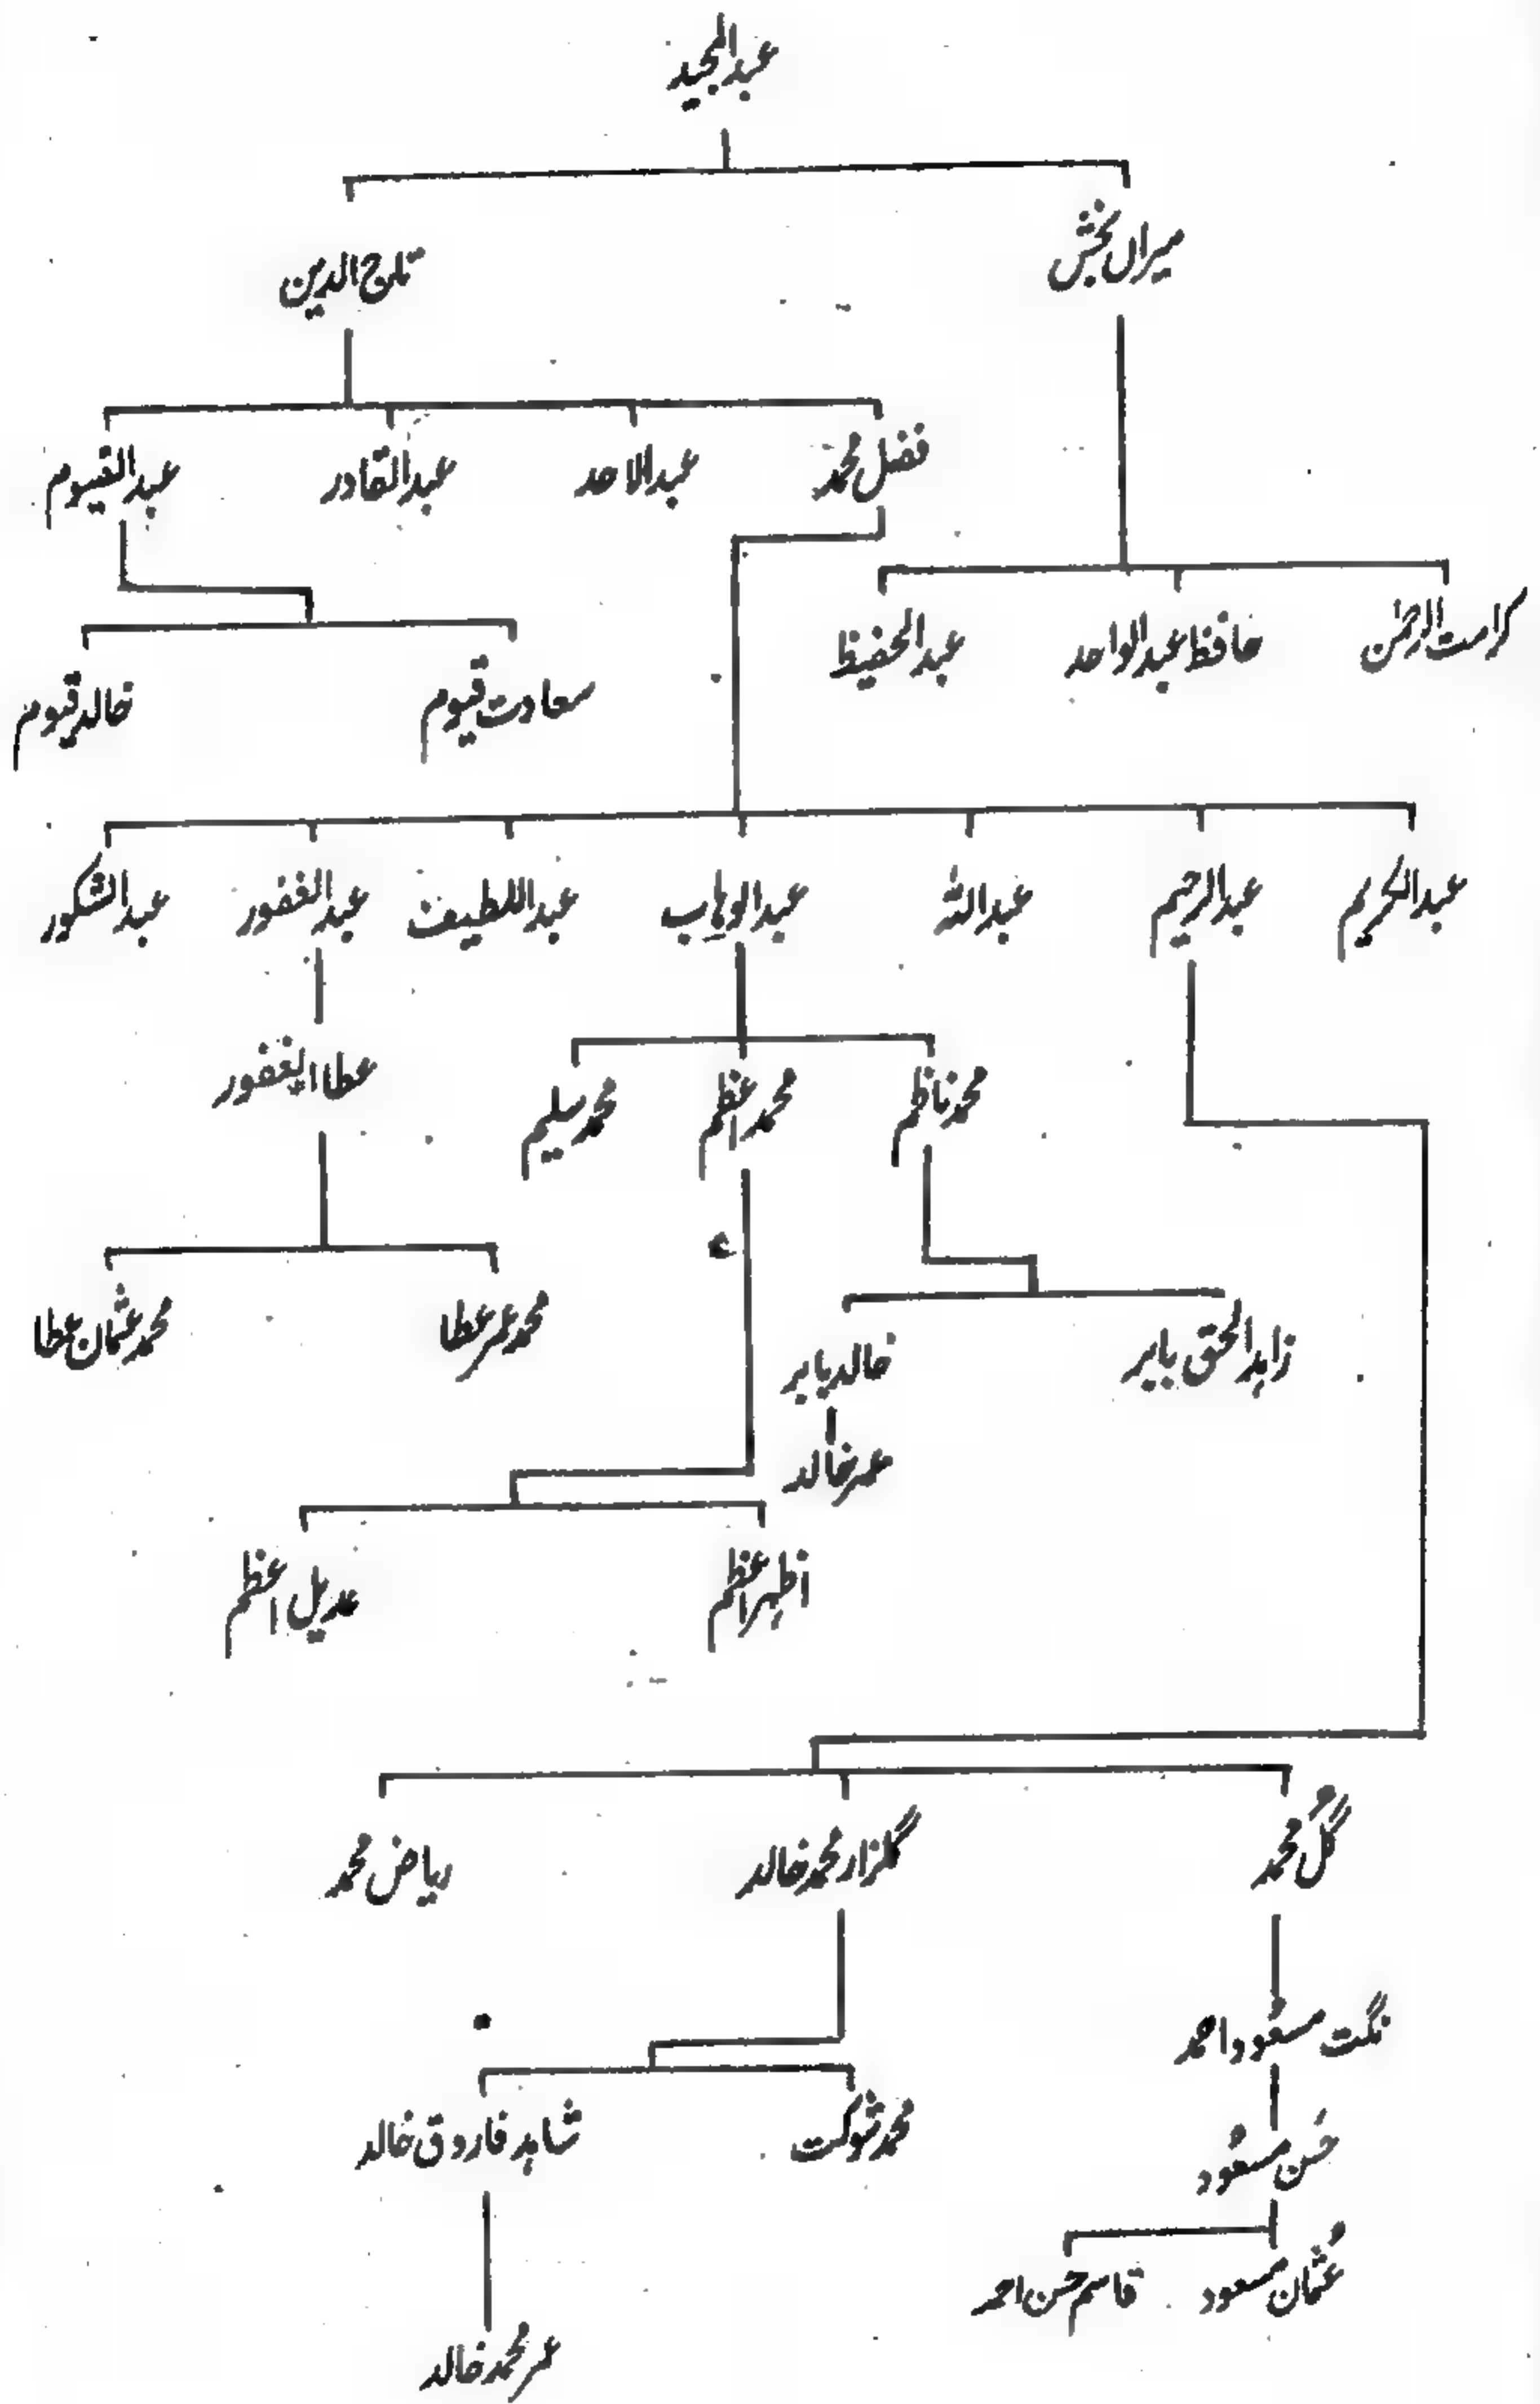 عبدالمجید
میراں بخش
تاج الدین
فضل محمد
عبدالاحد
عبدالقادر
عبدالقیوم
کرامت الرحمٰن
حافظ عبدالواحد
عبدالحفیظ
سعادت قیوم
خالد قیوم
عبدالکریم
عبدالرحیم
عبداللہ
عبدالوہاب
عبداللطیف
عبدالغفور
عبدالشکور
عطاءالغفور
محمد ناظم
محمد اعظم
محمد سلیم
محمد عمر عطا
محمد عثمان عطا
زاہد الحق بابر
خالد بابر
عمر خالد
اظہر اعظم
عدیل اعظم
گل محمد
گلزار محمد خالد
ریاض محمد
نگت مسعود احمد
محمد شوکت
شاہد فاروق خالد
حسن مسعود
عثمان مسعود
قاسم حسن احمد
عمر محمد خالد